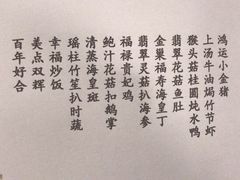 鸿运小金猪
上汤牛油焗竹节虾
猴头菇桂圆炖水鸭
翡翠花菇鱼肚
金巢福寿海皇丁
翡翠灵菇扒海参
福禄贵妃鸡
鲍汁花菇扣鹅掌
清蒸海皇斑
瑶柱竹笙扒时蔬
幸福炒饭
美点双辉
百年好合